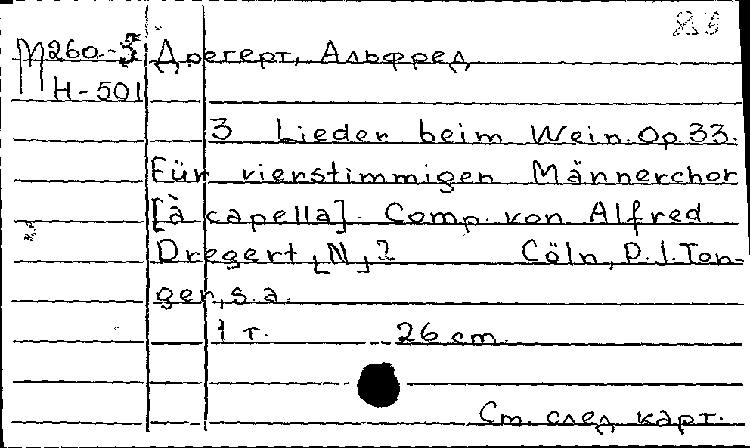 М260-5 Дрегерт, Альфред
Н-501
3 Lieder beim Wein. Op 33.
Für vierstimmigen Männerchor
[à capella]. Comp. von Alfred
Dregert, [N, 2 Cöln, P. J. Ton-
ger, s. a.
1 т. 26 cm.
Ст. след. карт.